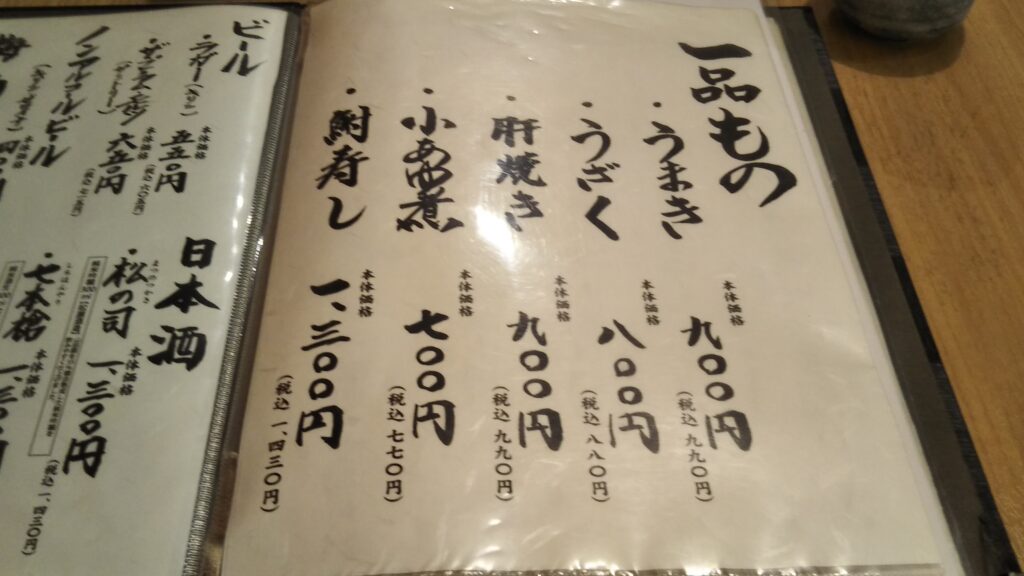 一品もの
・うまき
本体価格
九〇〇円
(税込 九九〇円)
・うざく
本体価格
八〇〇円
(税込 八八〇円)
・肝焼き
本体価格
九〇〇円
(税込 九九〇円)
・小あゆ煮
本体価格
七〇〇円
(税込 七七〇円)
・鮒寿し
本体価格
一、三〇〇円
(税込 一、四三〇円)
ビール
・ラガー
本体価格
五五〇円
本体価格
六五〇円
ノンアルコールビール
本体価格
日本酒
・松の司
まつのつかさ
本体価格
一、三〇〇円
(税込 一、四三〇円)
・七本槍
本体価格